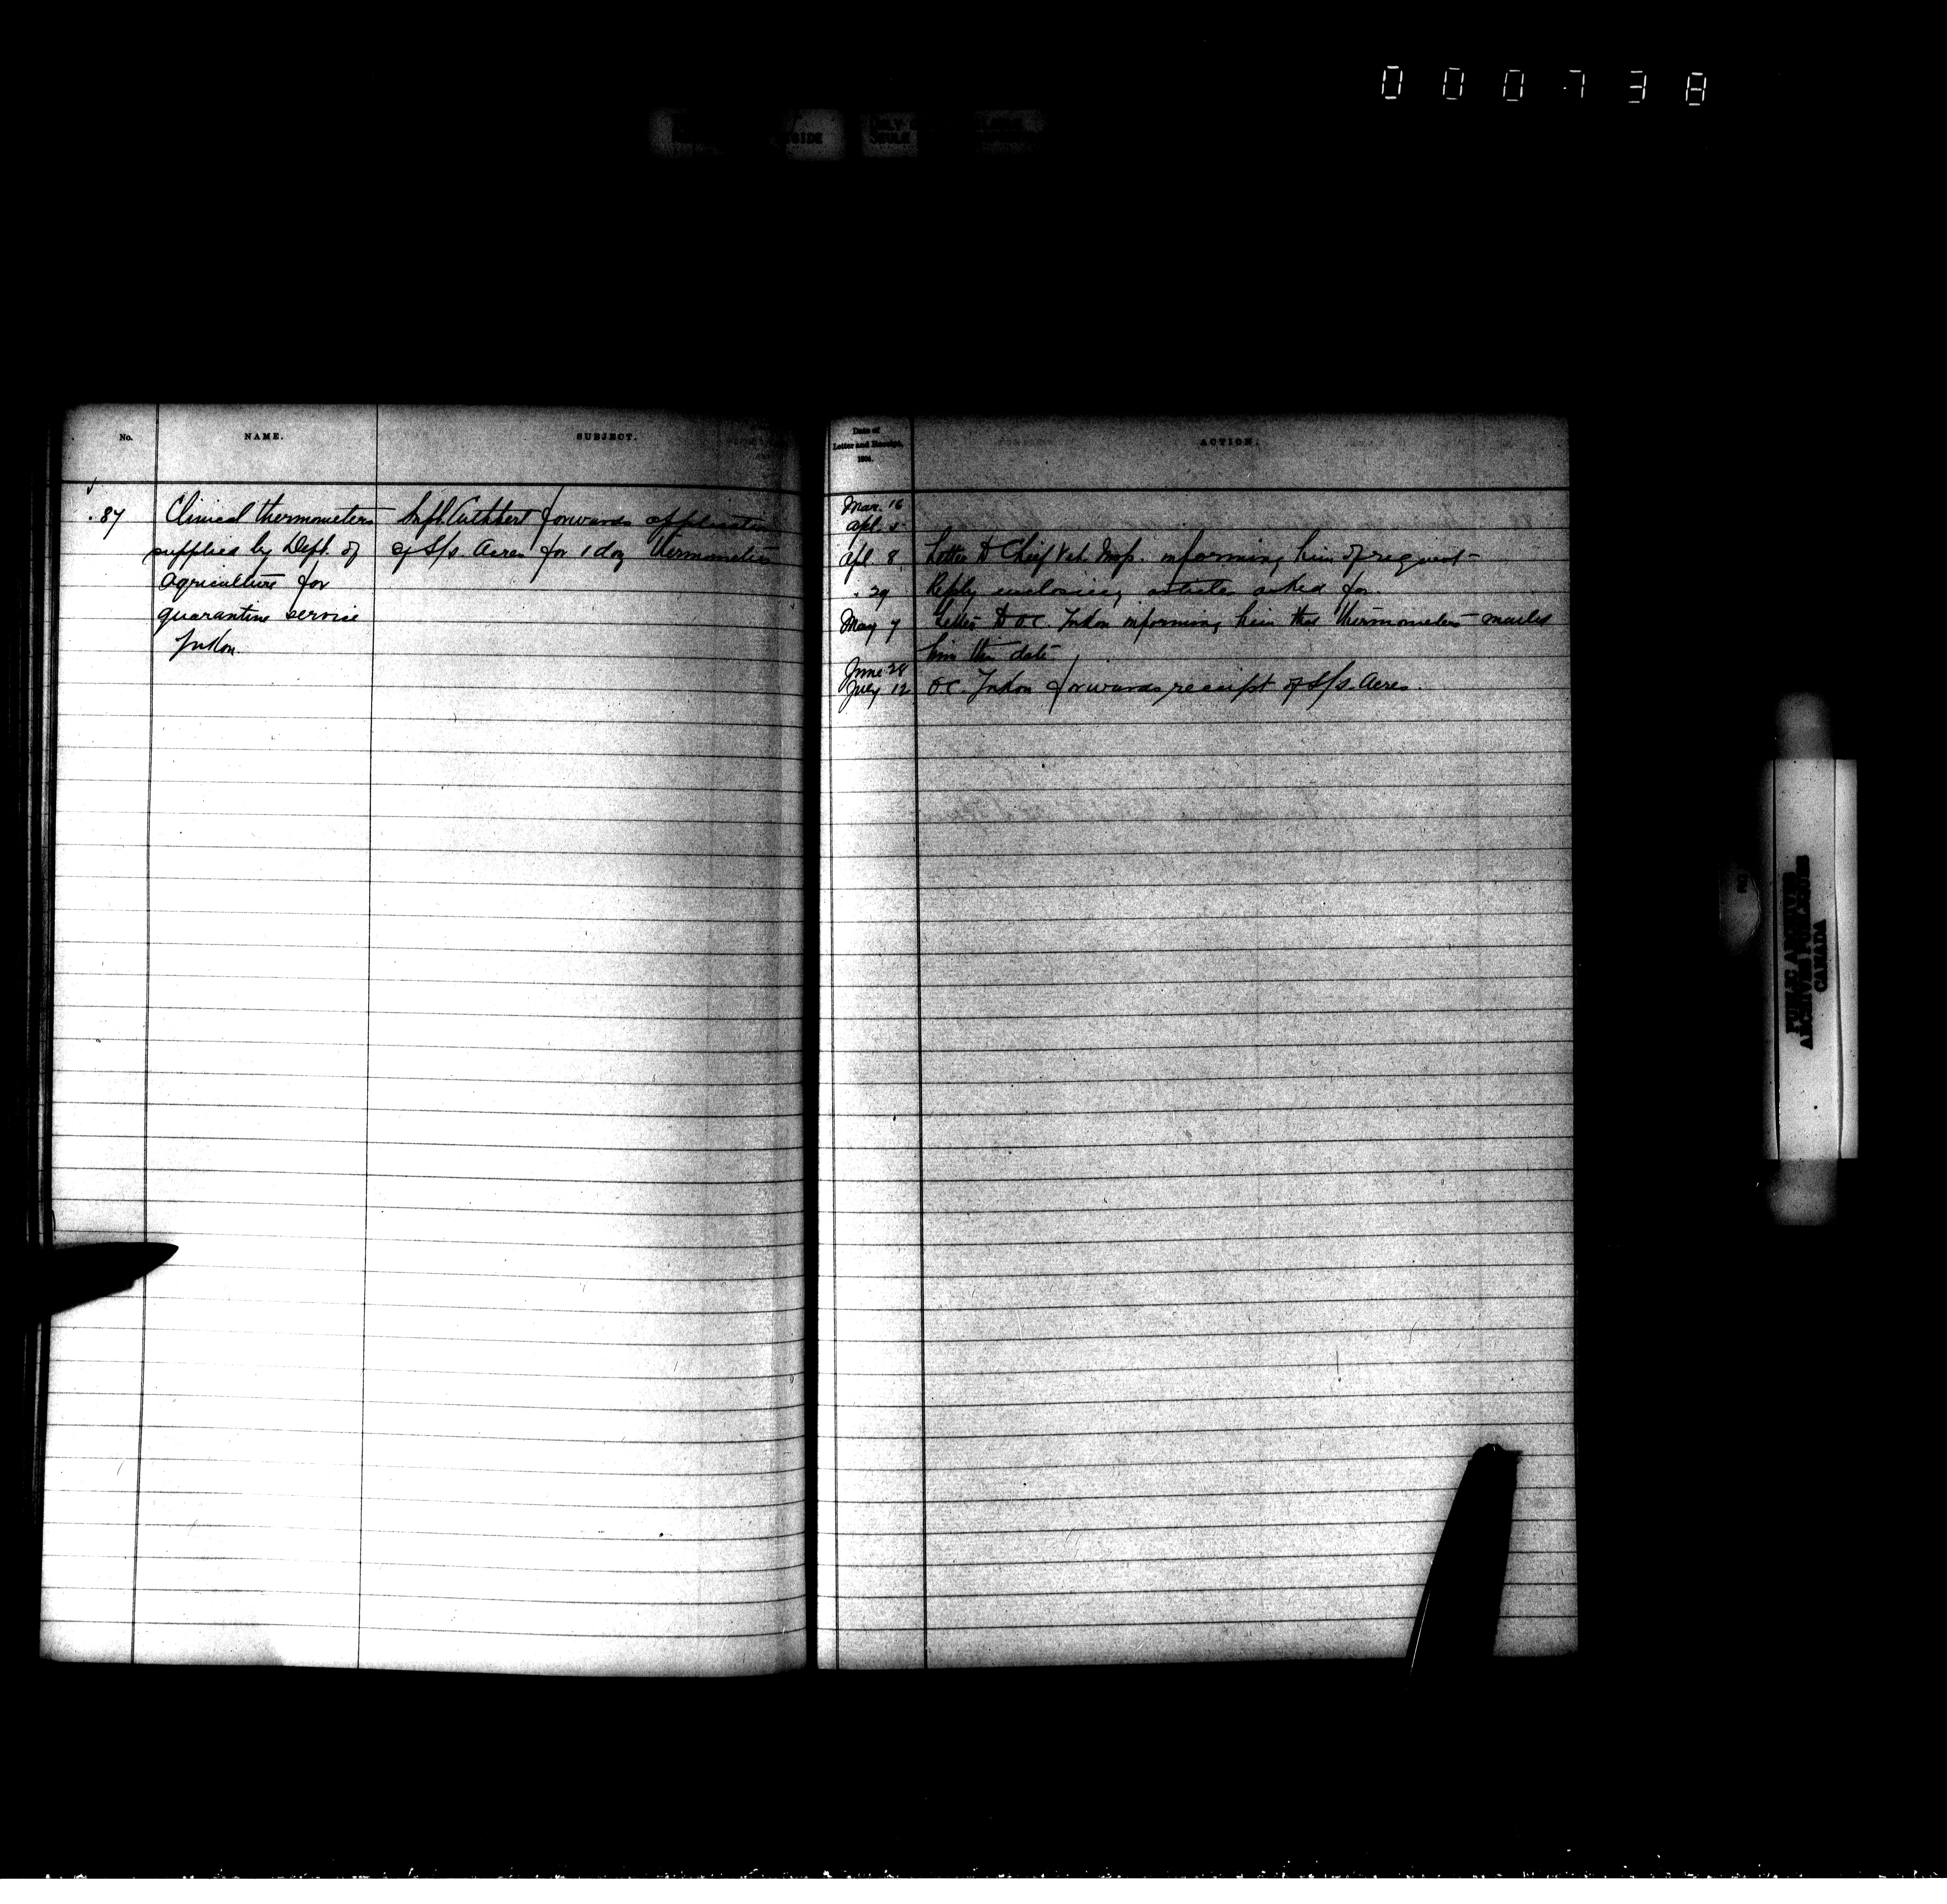 000738
No.
NAME.
SUBJECT.
87
Clinical thermometers
supplied by Dept. of
Agriculture for
quarantine service
Yukon.
Supt. Cuthbert forwards application
of S/s. Acres for 1 doz thermometers
Date of
Letter and Receipt,
1904.
ACTION.
Mar. 16
Apl. 5
Apl. 8 Letter to Chief Vet. Insp. informing him of request
" 29 Reply enclosing articles asked for
May 7 Letter to O.C. Yukon informing him that thermometers mailed
him this date
June 28
July 12 O.C. Yukon forwards receipt of S/s. Acres.
PUBLIC ARCHIVES
ARCHIVES PUBLIQUES
CANADA